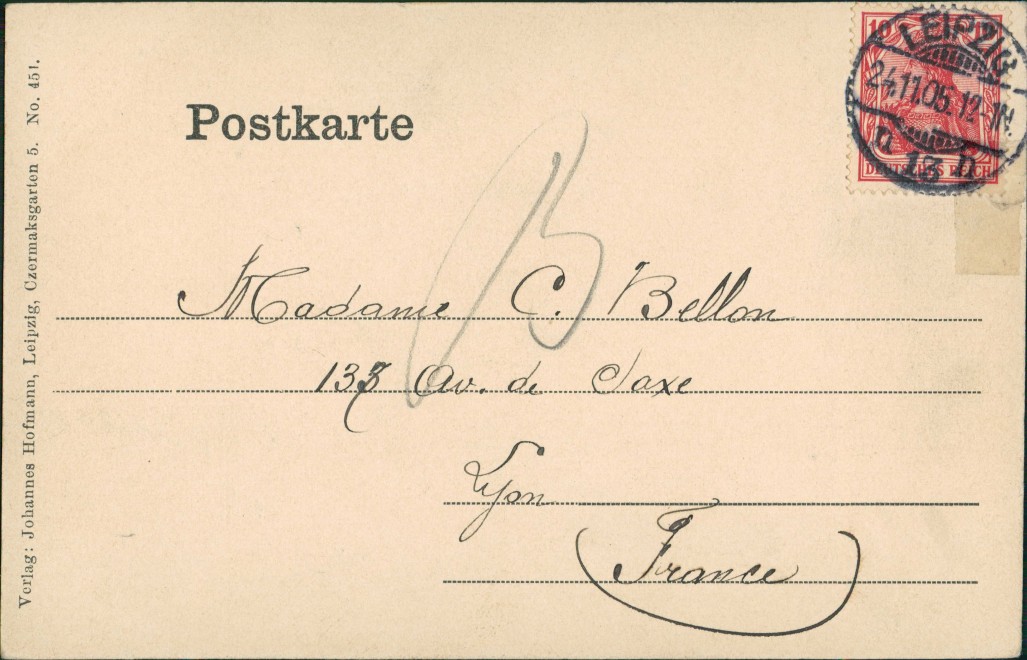 Postkarte
10
DEUTSCHES REICH
LEIPZIG
24.11.05.12-1N.
13
Madame C. Bellon
137 Av. de Saxe
Lyon
France
Verlag: Johannes Hofmann, Leipzig, Czermaksgarten 5. No. 451.